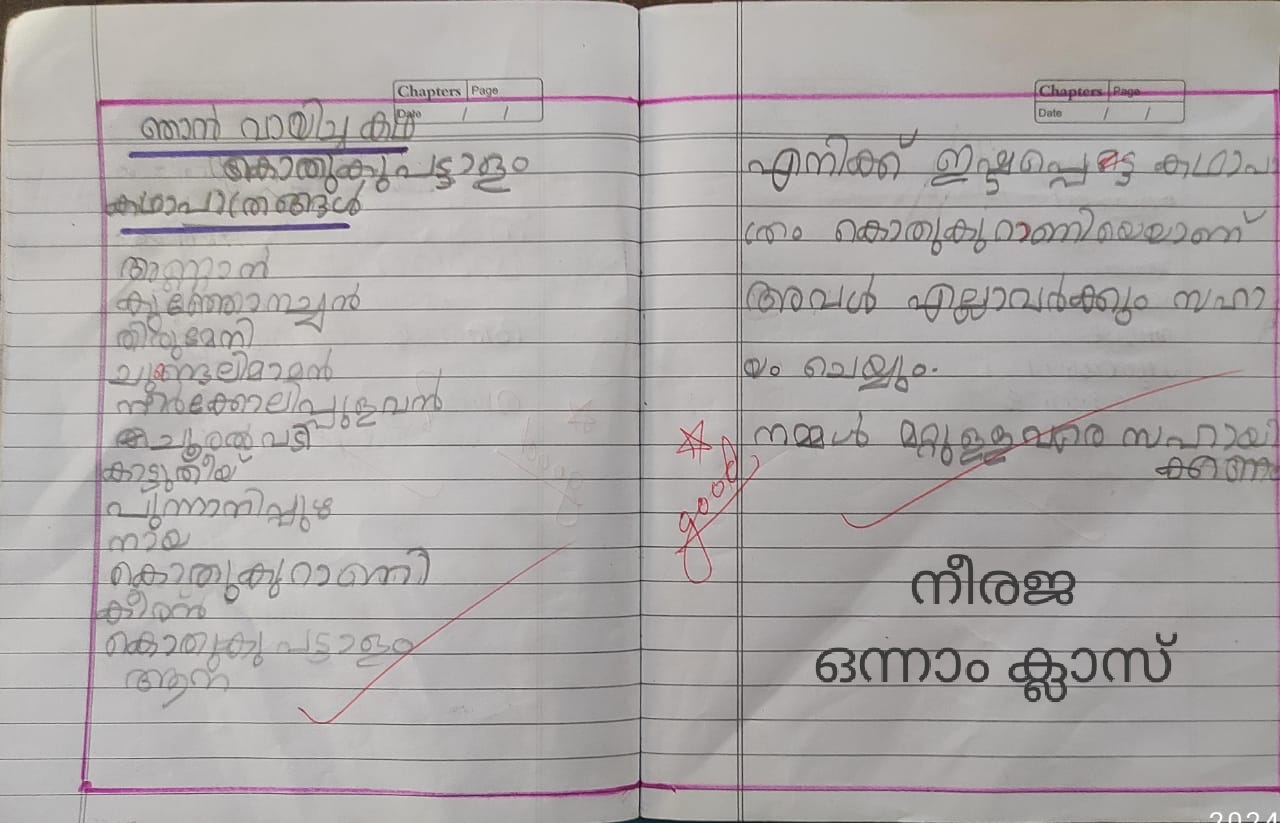 Chapters Page
Date / /
ഞാൻ വായിച്ച കഥ
കൊതുകുപട്ടാളം
കഥാപാത്രങ്ങൾ
അണ്ണാൻ
കുഞ്ഞോനച്ചൻ
തിരുമേനി
ചുണ്ടെലിമാമൻ
നീർക്കോലിപ്പുളവൻ
ചൂരൽവടി
കാട്ടുതീയ്
പൂന്നാനിപ്പുഴ
നായ
കൊതുകുറാണി
കീരൻ
കൊതുകുപട്ടാളം
ആന
Chapters Page
Date / /
എനിക്ക് ഇഷ്ടപ്പെട്ട കഥാപാ
ത്രം കൊതുകുറാണിയെയാണ്
അവൾ എല്ലാവർക്കും സഹാ
യം ചെയ്യും.
നമ്മൾ മറ്റുള്ളവരെ സഹായി
ക്കണം
good
നീരജ
ഒന്നാം ക്ലാസ്
2024